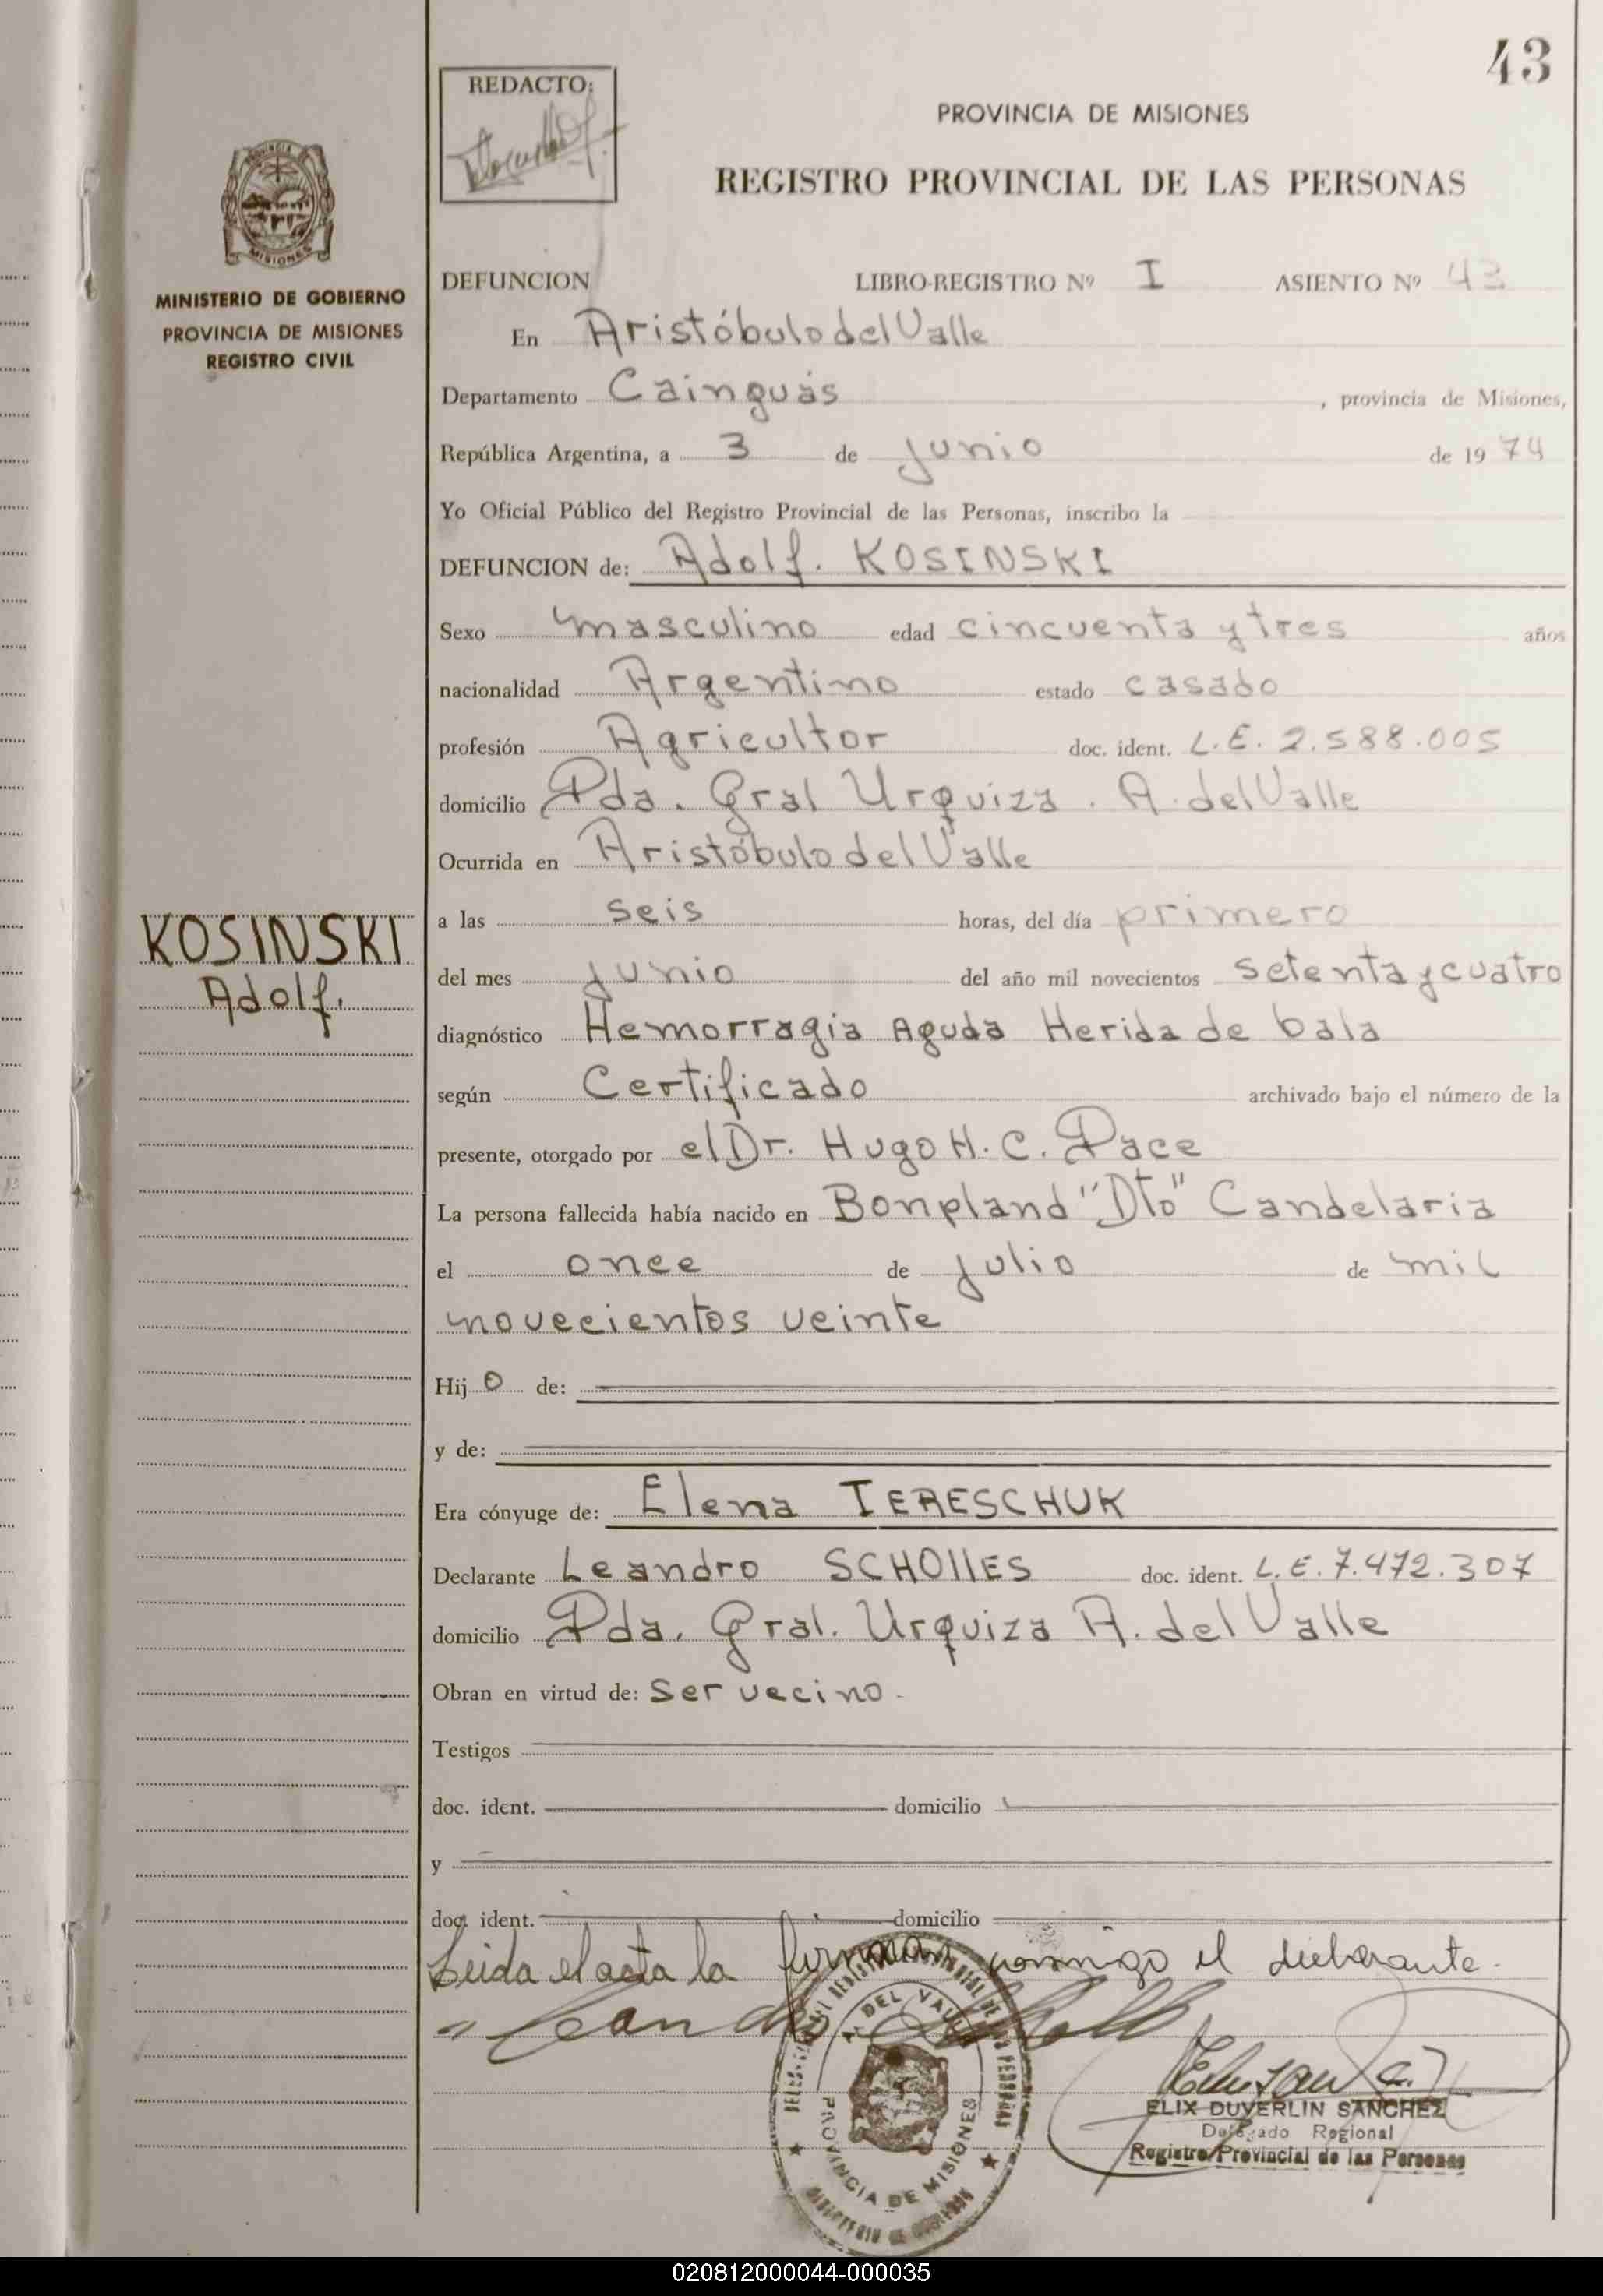 43
REDACTO:
PROVINCIA DE MISIONES
REGISTRO PROVINCIAL DE LAS PERSONAS
PROVINCIA
MISIONES
MINISTERIO DE GOBIERNO
PROVINCIA DE MISIONES
REGISTRO CIVIL
DEFUNCION LIBRO-REGISTRO Nº I ASIENTO Nº 43
En Aristóbulo del Valle
Departamento Cainguás , provincia de Misiones,
República Argentina, a 3 de Junio de 19 74
Yo Oficial Público del Registro Provincial de las Personas, inscribo la
DEFUNCION de: Adolf. KOSINSKI
Sexo masculino edad cincuenta y tres años
nacionalidad Argentino estado casado
profesión Agricultor doc. ident. L.E. 2.588.005
domicilio Pda. Gral Urquiza. A. del Valle
Ocurrida en Aristóbulo del Valle
a las seis horas, del día primero
KOSINSKI
Adolf.
del mes Junio del año mil novecientos setenta y cuatro
diagnóstico Hemorragia Aguda Herida de bala
según Certificado archivado bajo el número de la
presente, otorgado por el Dr. Hugo H. C. Pace
La persona fallecida había nacido en Bonpland "Dto" Candelaria
el once de Julio de mil
novecientos veinte
Hij o de:
y de:
Era cónyuge de: Elena TERESCHUK
Declarante Leandro SCHOllES doc. ident. L.E. 7.472.307
domicilio Pda. Gral. Urquiza A. del Valle
Obran en virtud de: Ser vecino.
Testigos
doc. ident. domicilio
y
doc. ident. domicilio
Leida el acta la firman conmigo el declarante.
A. DEL VALLE
PROVINCIA DE MISIONES
ELIX DUVERLIN SANCHEZ
Delegado Regional
Registro Provincial de las Personas
020812000044-000035